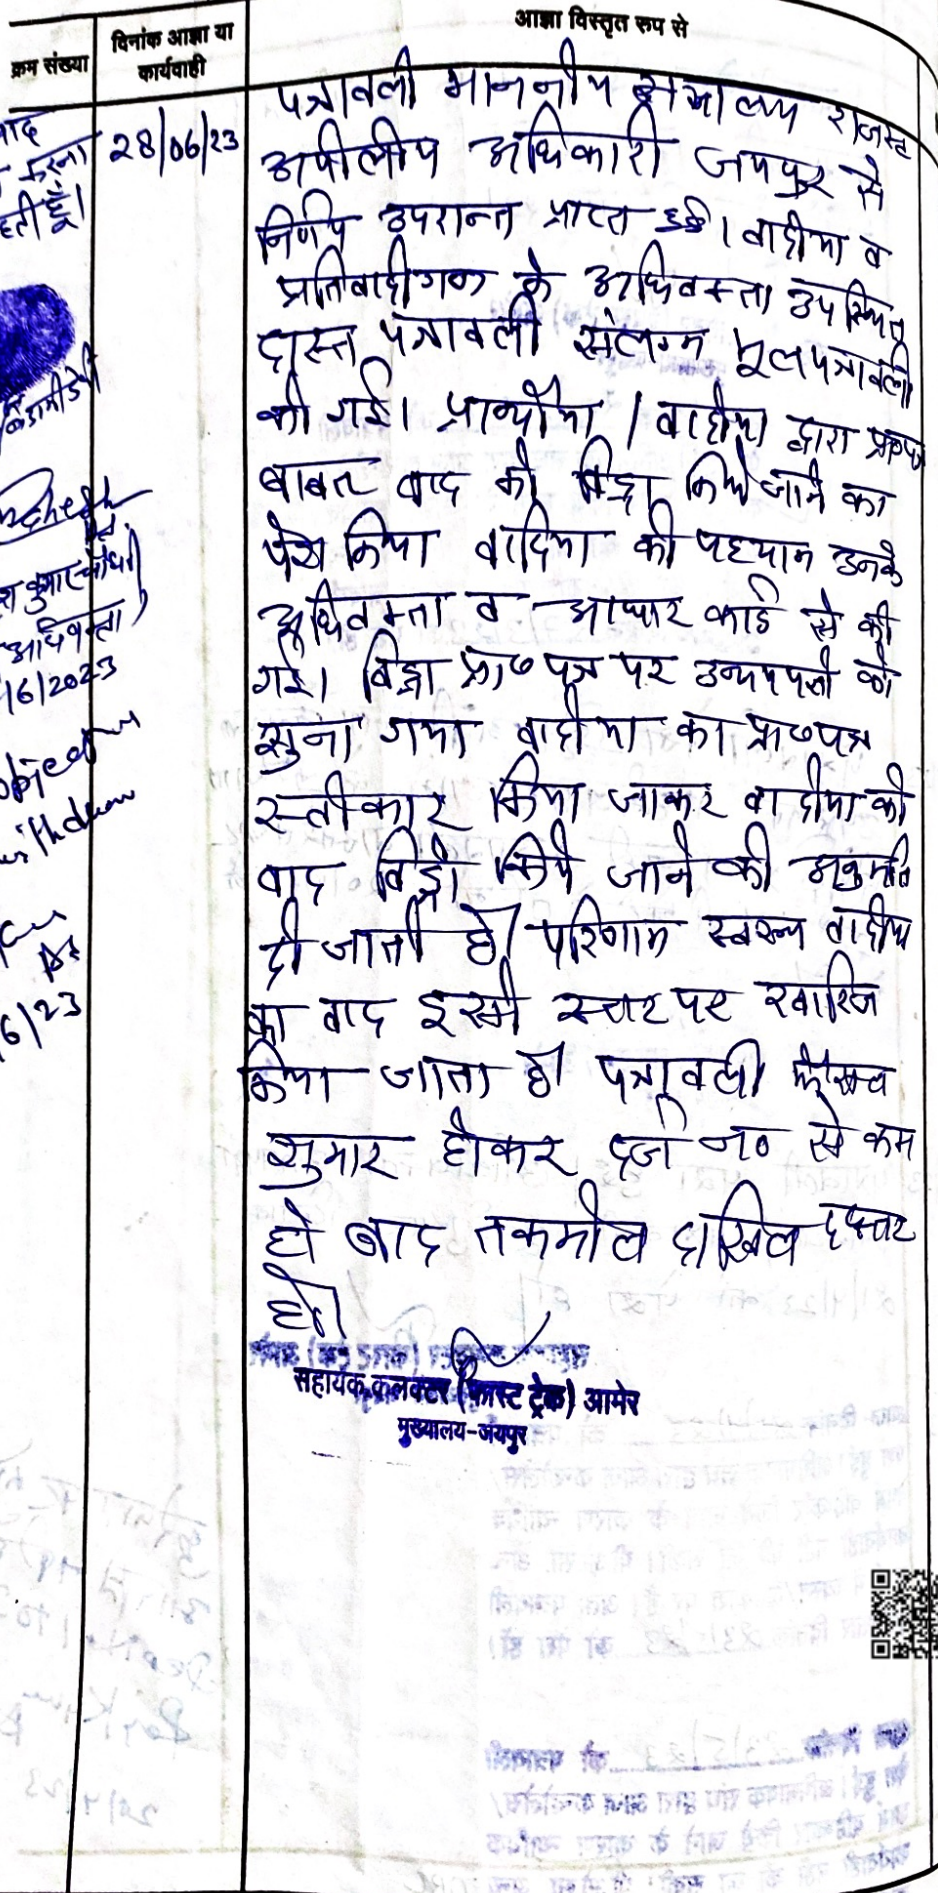 आज्ञा विस्तृत रूप से
क्रम संख्या
दिनांक आज्ञा या
कार्यवाही
28/06/23
पत्रावली माननीय राजस्व
अपीलीय अधिकारी जयपुर से
निर्णय उपरान्त प्राप्त हुई। वादीया व
प्रतिवादीगण के अधिवक्ता उपस्थित
पत्रावली संलग्न मूल पत्रावली
की गई। प्रार्थीया / वादीया द्वारा प्रा०पत्र
बाबत वाद को विड्रा किये जाने का
पेश किया वादिया की पहचान उनके
अधिवक्ता व आधार कार्ड से की
गई। विड्रा प्रा० पत्र पर उभयपक्षो को
सुना गया वादीया का प्रा०पत्र
स्वीकार किया जाकर वादीया को
वाद विड्रो किये जाने की अनुमति
दी जाती है। परिणाम स्वरूप वादीया
का वाद इसी स्तर पर खारिज
किया जाता है। पत्रावली फैसल
शुमार होकर दर्ज न० से कम
हो बाद तकमील दाखिल दफ्तर
हो।
सहायक कलक्टर (फास्ट ट्रेक) आमेर
मुख्यालय-जयपुर
वाद
करना
हूँ।
अधिवक्ता
/6/2023
6/23